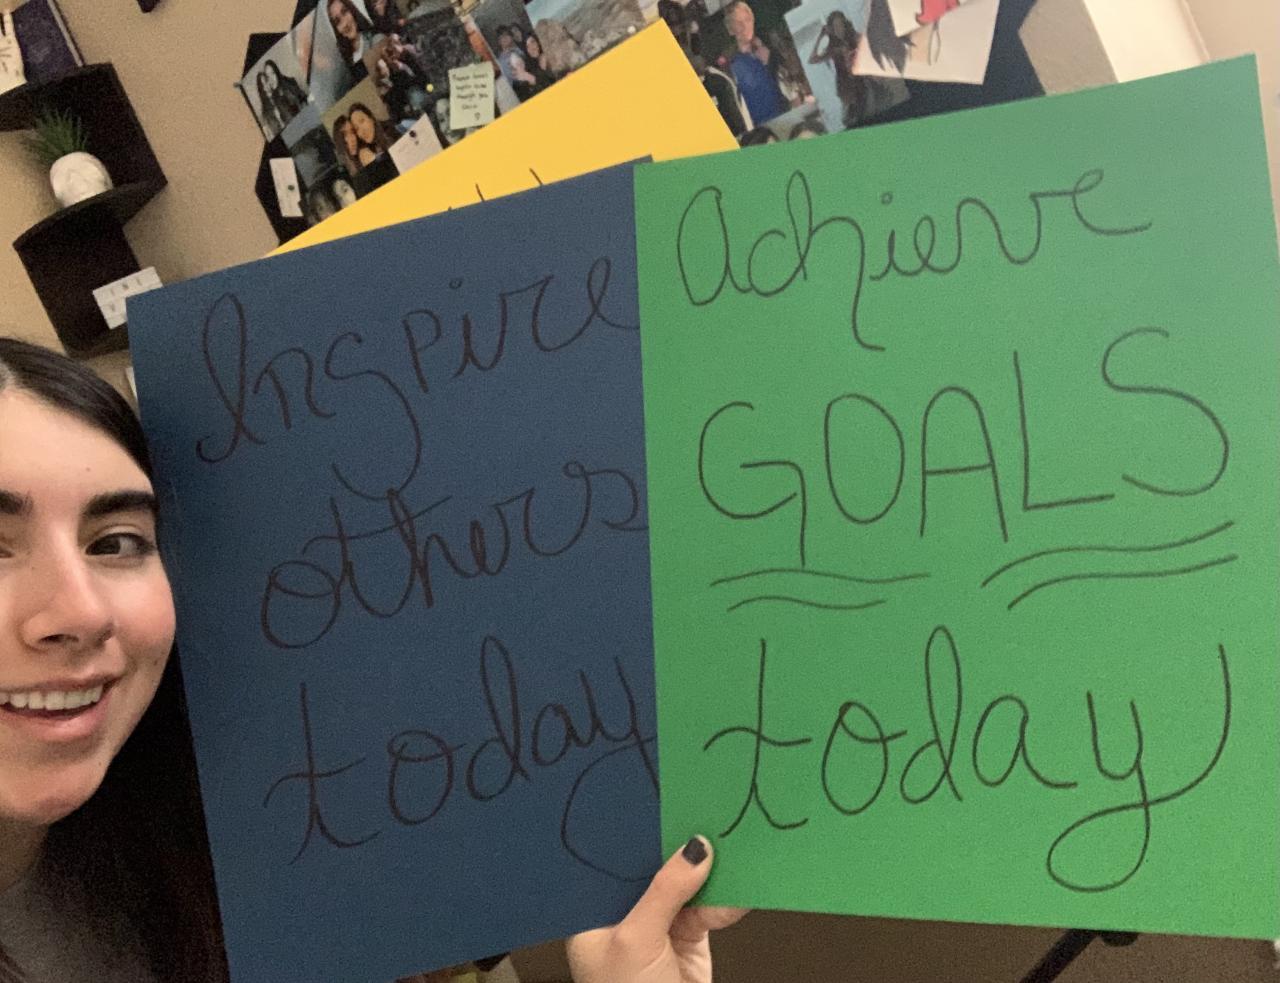 Inspire
others
today
achieve
GOALS
today